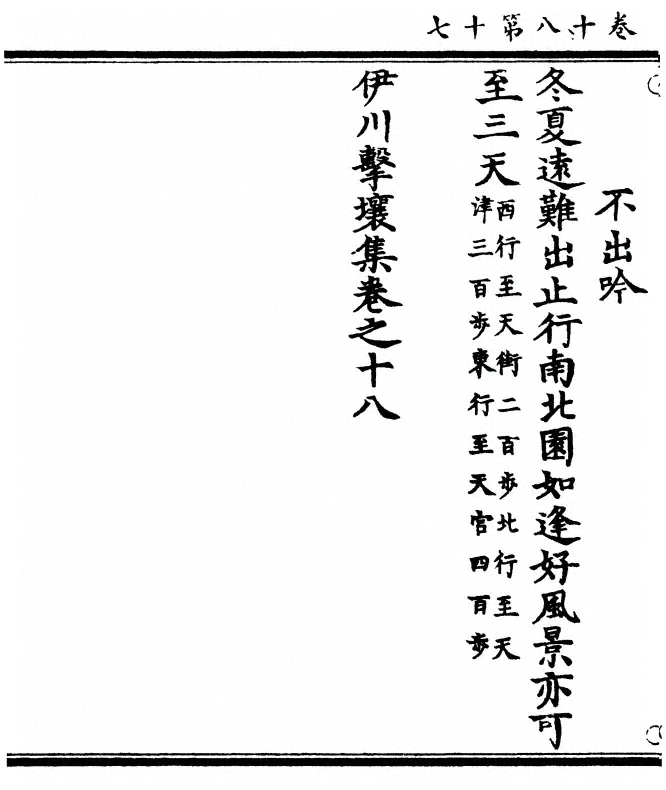 卷十八第十七
不出吟
冬夏遠難出止行南北園如逢好風景亦可
至三天
西行至天街二百步北行至天
津三百步東行至天宫四百步
伊川擊壤集卷之十八